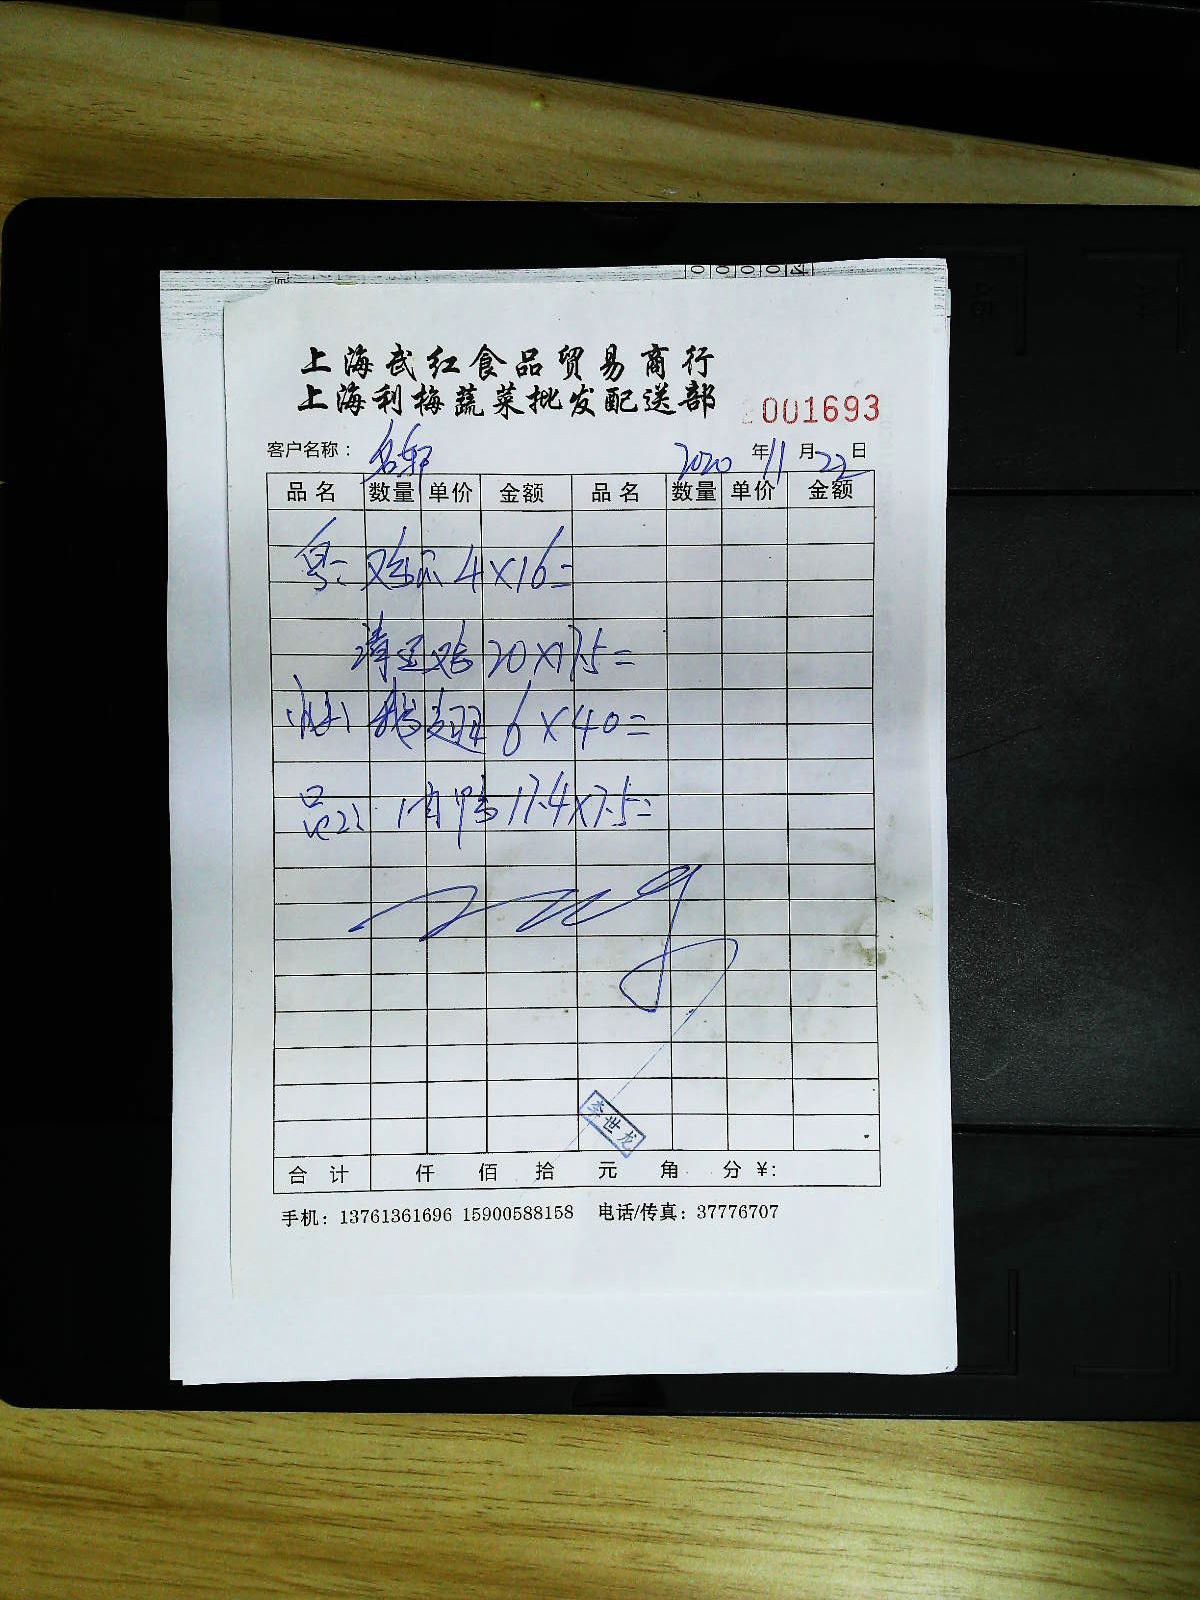 上海武红食品贸易商行
上海利梅蔬菜批发配送部
001693
客户名称： 名轩 2020 年 11 月 22 日
品名 数量 单价 金额 品名 数量 单价 金额
鸡爪 4×16=
清远鸡 20×17.5=
鹅翅 6×40=
17.4×7.5=
李世龙
合计 仟 佰 拾 元 角 分 ¥:
手机：13761361696 15900588158 电话/传真：37776707